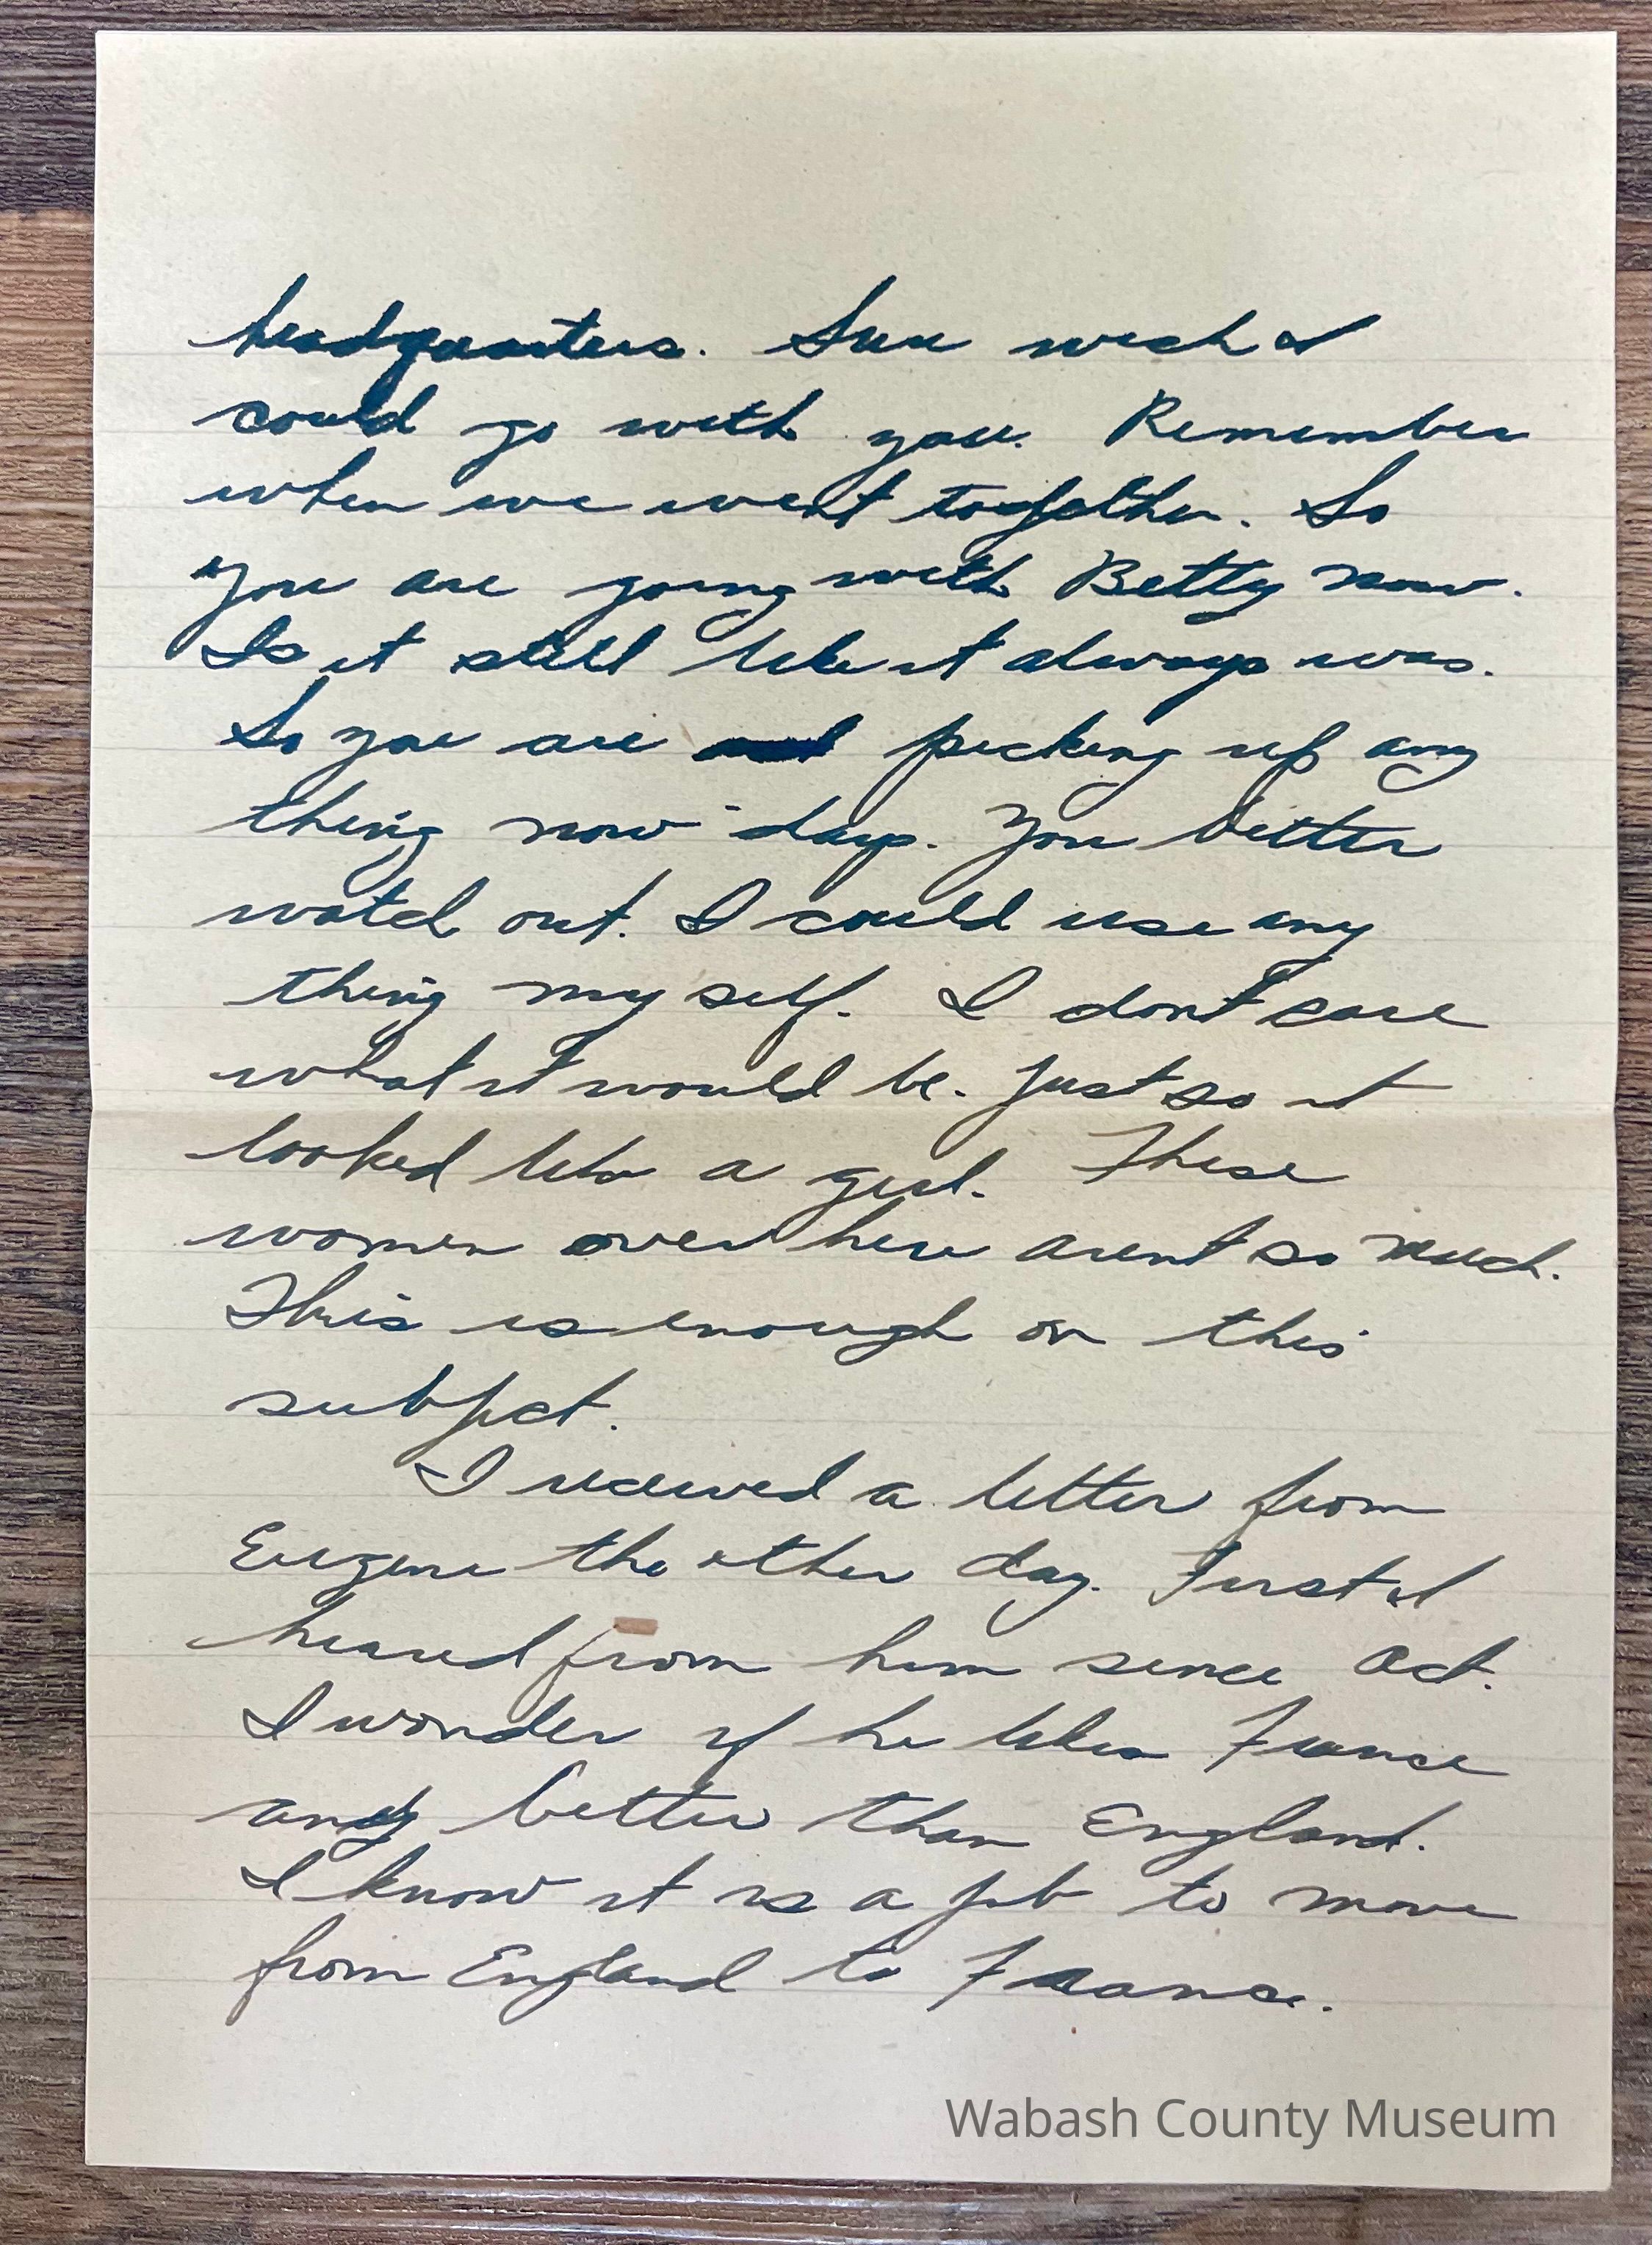 headquarters. Sure wish I
could go with you. Remember
when we went together. So
you are going with Betty now.
Is it still like it always was.
So you are picking up any
thing now days. You better
watch out. I could use any
thing my self. I dont care
what it would be. Just so it
looked like a girl. These
women over here arent so much.
This is enough on this
subject.
I recieved a letter from
Eugene the other day. First I
heard from him since Oct.
I wonder if he likes France
any better than England.
I know it is a job to move
from England to France.
Wabash County Museum